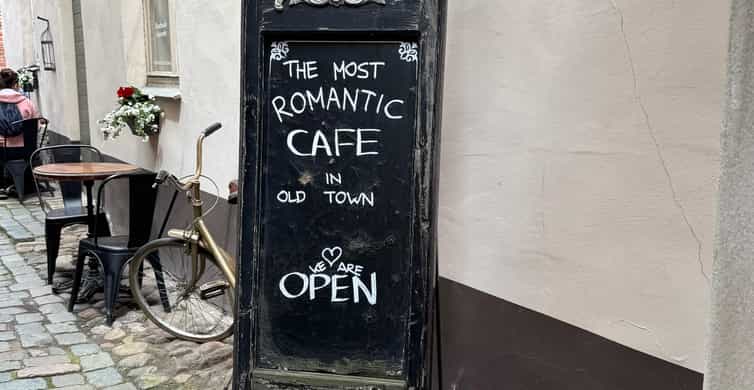 THE MOST
ROMANTIC
CAFE
IN
OLD TOWN
WE ARE
OPEN